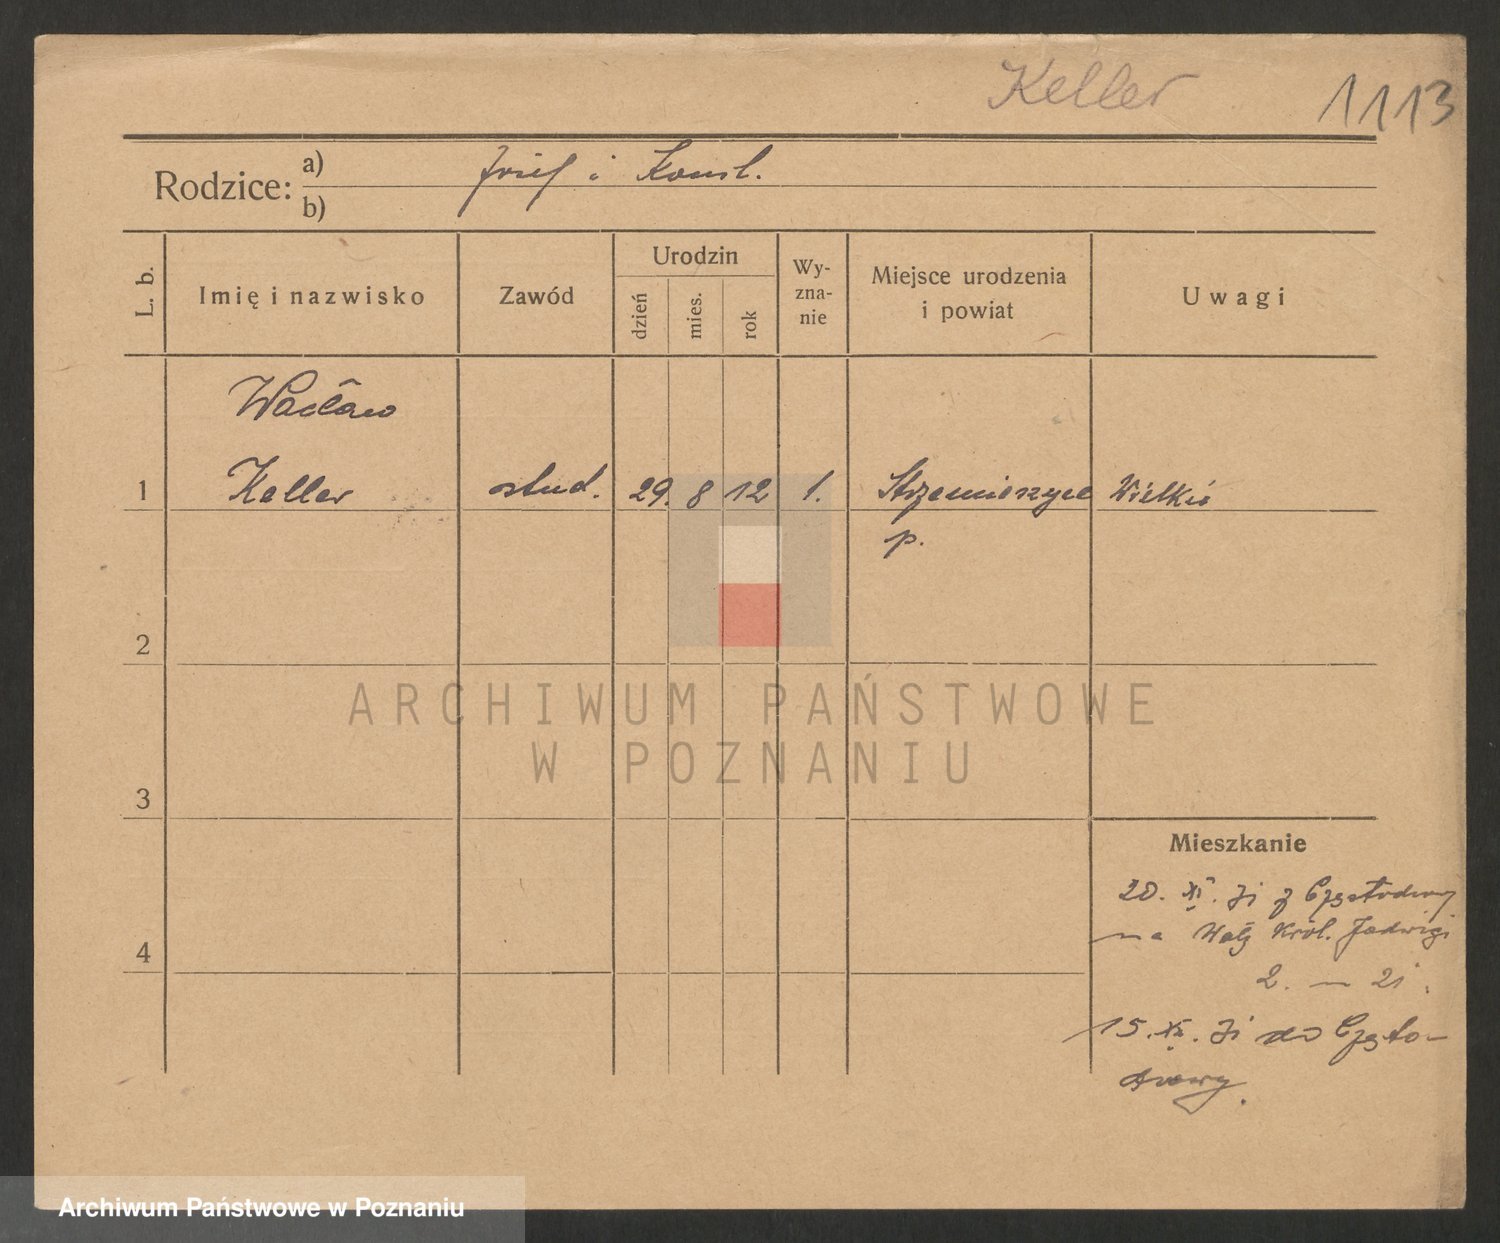 Keller 1113
Rodzice: a) b) Józef i Konst.
L. b.
Imię i nazwisko
Zawód
Urodzin
dzień
mies.
rok
Wy-
zna-
nie
Miejsce urodzenia
i powiat
Uwagi
Wacław
1 Keller stud. 29. 8 12 1. Strzemieszyce Wielkie
p.
2
3
4
Mieszkanie
20. XI. 31 z Częstochowy
na Wały Król. Jadwigi
2. — 21.
15. XII. 31 do Często-
chowy.
ARCHIWUM PAŃSTWOWE
W POZNANIU
Archiwum Państwowe w Poznaniu